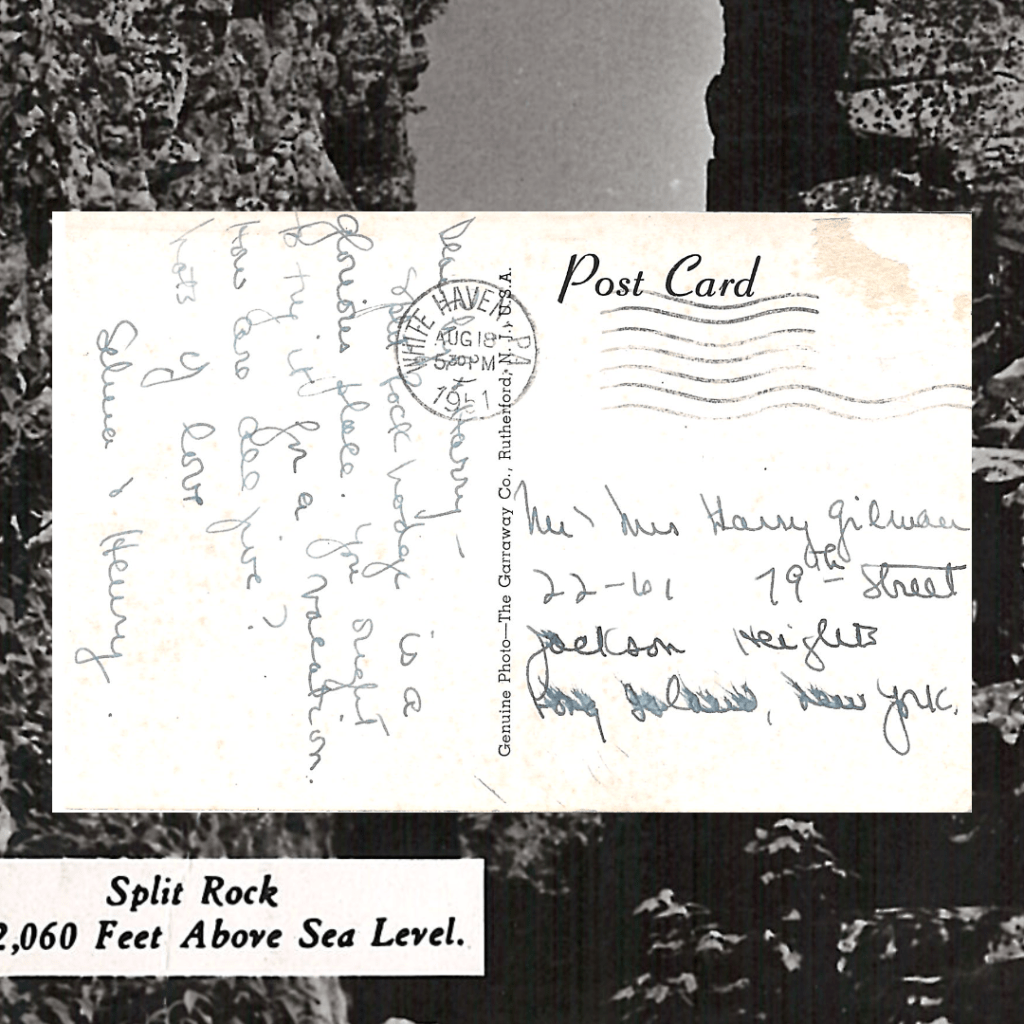 Post Card
WHITE HAVEN, PA
AUG 18
5 30 PM
1951
Genuine Photo—The Garraway Co., Rutherford, N. J., U.S.A.
Harry –
Split Rock Lodge is a
glorious place. You ought
to try it for a vacation.
How are all five?
Lots of love
Selma & Henry.
Mr & Mrs Harry Gilman
22-61 79th Street
Jackson Heights
Long Island, New York.
Split Rock
2,060 Feet Above Sea Level.